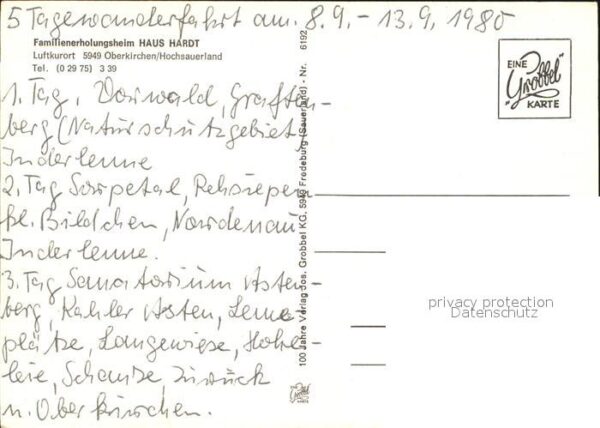 5 Tagewanderfahrt am. 8.9. - 13.9.1980
Familienerholungsheim HAUS HARDT
Luftkurort 5949 Oberkirchen/Hochsauerland
Tel. (0 29 75) 3 39
1. Tag, Vorwald, Graften-
berg (Naturschutzgebiet)
Inderlenne
2. Tag Sorpetal, Rehsiepen
kl. Bildchen, Nordenau
Inderlenne.
3. Tag Sanatorium Asten-
berg, Kahler Asten, Lenne-
plätze, Langewiese, Hohe-
leie, Schanze, zurück
n. Oberkirchen.
100 Jahre Verlag Jos. Grobbel KG, 5948 Fredeburg (Sauerland) - Nr. 6192
EINE
"Grobbel"
KARTE
privacy protection
Datenschutz